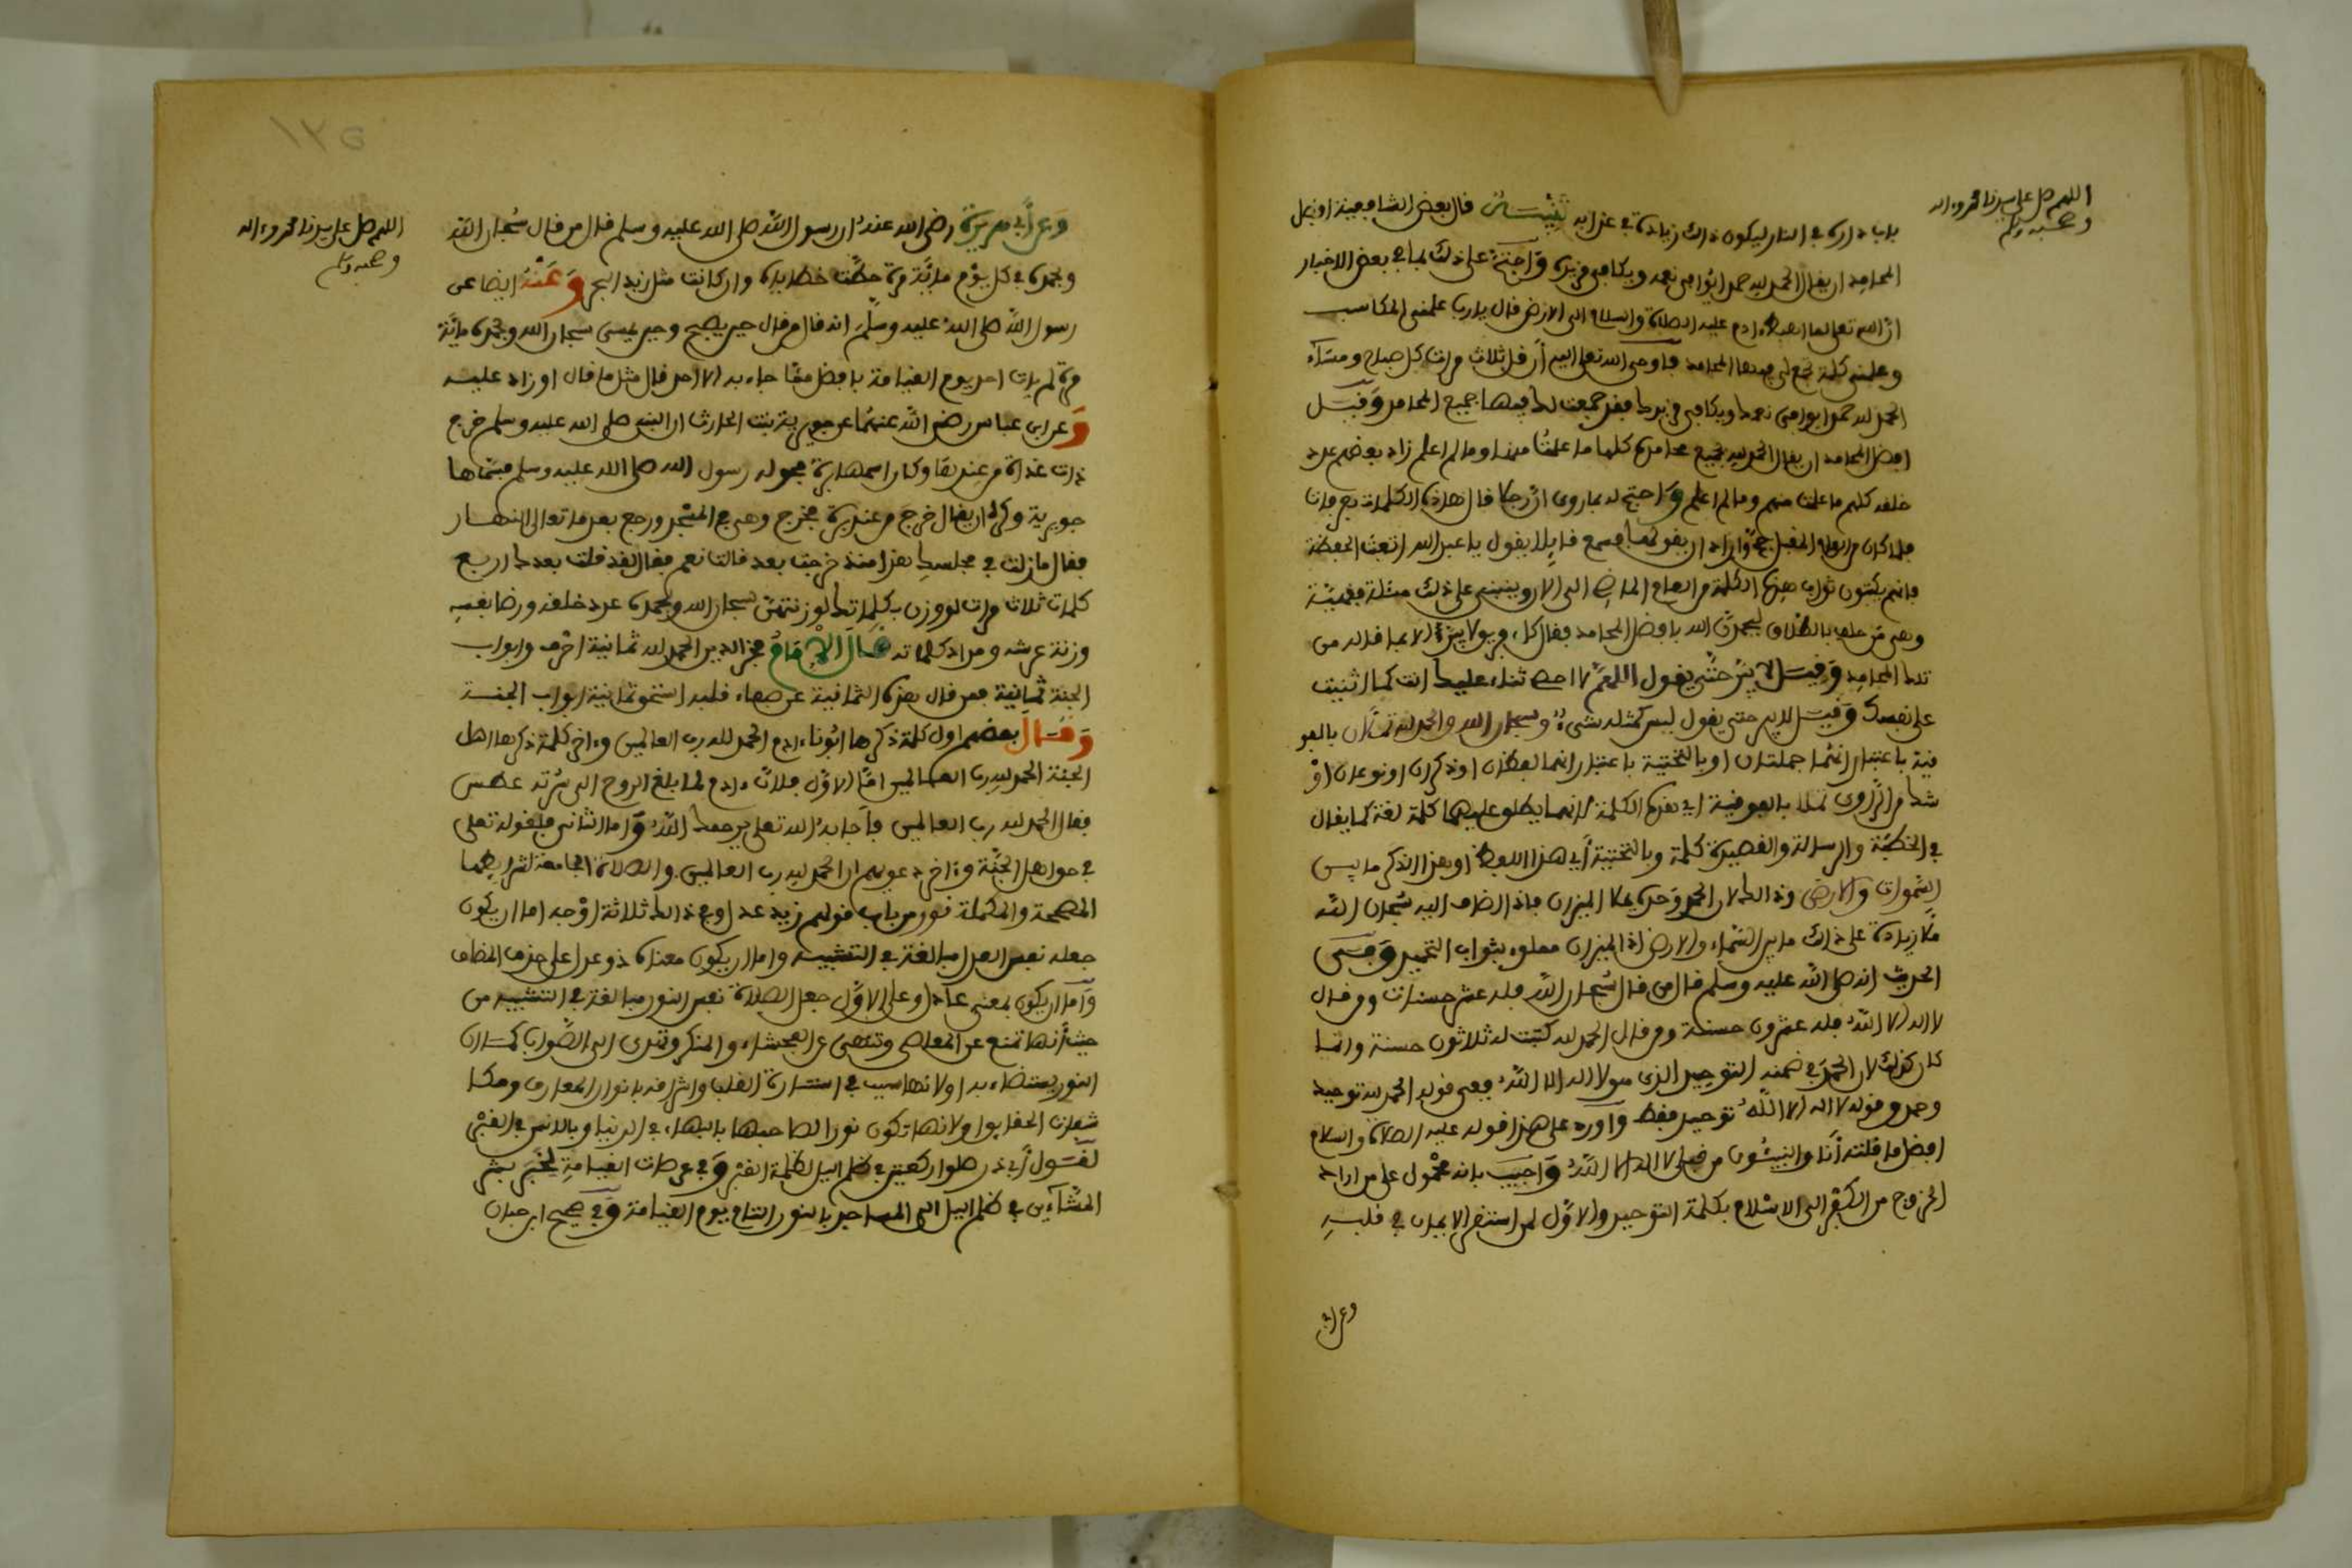 اللهم صل على سيدنا محمد وءاله
وصحبه وسلم
بابدارك في النار ليكون ذلك زيادة في عذابه تنبيهات قال بعض الشافعية افضل
المحامد ان يقال الحمد لله حمدا يوافي نعمه ويكافئ مزيده واحتج على ذلك بما في بعض الاخبار
ان الله تعالى لما اهبط ءادم عليه الصلاة والسلام الى الارض قال يا رب علمني المكاسب
وعلمني كلمة تجمع لي فيها المحامد فاوحى الله تعالى اليه أن قل ثلاث مرات كل صباح ومساء
الحمد لله حمدا يوافي نعمك ويكافئ مزيدك فقد جمعت لك فيها جميع المحامد وقيل
افضل المحامد ان يقال الحمد لله بجميع محامده كلها ما علمت منها وما لم اعلم زاد بعضهم عدد
خلقه كلهم ما علمت منهم وما لم اعلم واحتج له بما روي أن رجلا قال هذه الكلمات بعرفات
فلما كان من العام المقبل حج وأراد ان يقولها فسمع قايلا يقول يا عبد الله اتعبت الحفظة
فانهم يكتبون ثواب هذه الكلمة من العام الماضي الى الان وينبني على ذلك مسئلة فقهية
وهي من حلف بالطلاق ليحمدن الله بافضل المحامد فقال كل فريق لا يبرأ الا بما قاله من
تلك المحامد وقيل لا يبر حتى يقول اللهم لا احصي ثناء عليك انت كما اثنيت
على نفسك وقيل لا يبر حتى يقول ليس كمثله شيء وسبحان الله والحمد لله تملآن بالفو
قية باعتبار انهما جملتان او بالتحتية باعتبار انهما لفظان او ذكران او نوعان أو
شك من الراوي تملأ بالفوقية اي هذه الكلمة لانهما يطلق عليهما كلمة لغة كما يقال
في الخطبة والرسالة والقصيدة كلمة وبالتحتية أي هذا اللفظ او هذا الذكر ما بين
السموات والارض وذلك لان الحمد وحده يملأ الميزان فاذا اضاف اليه سبحان الله
ملأ زيادة على ذلك ما بين السماء والارض اذ الميزان مملوء بثواب التحميد وفي
الحديث انه صلى الله عليه وسلم قال من قال سبحان الله فله عشر حسنات ومن قال
لا اله الا الله فله عشرون حسنة ومن قال الحمد لله كتبت له ثلاثون حسنة وانما
كان كذلك لان الحمد في ضمنه التوحيد الذي هو لا اله الا الله ففي قوله الحمد لله توحيد
وحمد وفي قوله لا اله الا الله توحيد فقط وأورد على هذا قوله عليه الصلاة والسلام
افضل ما قلته أنا والنبيئون من قبلي لا اله الا الله وأجيب بانه محمول على من اراد
الخروج من الكفر الى الاسلام بكلمة التوحيد والاول لمن استقر الايمان في قلبه
وعن أبي
اللهم صل على سيدنا محمد وءاله
وصحبه وسلم
١٢٥
وعن أبي هريرة رضي الله عنه ان رسول الله صلى الله عليه وسلم قال من قال سبحان الله
وبحمده في كل يوم مائة مرة حطت خطاياه وان كانت مثل زبد البحر وعنه ايضا عن
رسول الله صلى الله عليه وسلم انه قال من قال حين يصبح وحين يمسي سبحان الله وبحمده مائة
مرة لم يات احد يوم القيامة بافضل مما جاء به الا احد قال مثل ما قال او زاد عليه
وعن ابن عباس رضي الله عنهما عن جويرية بنت الحارث ان النبي صلى الله عليه وسلم خرج
ذات غداة من عندها وكان اسمها برة فحوله رسول الله صلى الله عليه وسلم فسماها
جويرية وكره ان يقال خرج من عند برة فخرج وهي في المسجد ورجع بعد ما تعالى النهار
فقال ما زلت في مجلسك هذا منذ خرجت بعد قالت نعم فقال لقد قلت بعدك اربع
كلمات ثلاث مرات لو وزن بكلماتك لوزنتهن سبحان الله وبحمده عدد خلقه ورضا نفسه
وزنة عرشه ومداد كلماته قال الإمام فخر الدين الحمد لله ثمانية احرف وابواب
الجنة ثمانية فمن قال هذه الثمانية عن صفاء قلبه استحق ثمانية ابواب الجنة
وقال بعضهم اول كلمة ذكرها ابونا ءادم الحمد لله رب العالمين وءاخر كلمة ذكرها اهل
الجنة الحمد لله رب العالمين اما الاول فلان ءادم لما بلغ الروح الى سرته عطس
فقال الحمد لله رب العالمين فأجابه الله تعالى يرحمك الله واما الثاني فلقوله تعلى
في حق اهل الجنة وءاخر دعويهم ان الحمد لله رب العالمين والصلاة الجامعة لشرايطها
المصححة والمكملة نور من باب قولهم زيد عدل وفي ذلك ثلاثة اوجه اما ان يكون
جعله نفس العدل مبالغة في التشبيه واما ان يكون معناه ذو عدل على حذف المضاف
وأما ان يكون بمعنى عادل وعلى الاول جعل الصلاة نفس النور مبالغة في التشبيه من
حيث أنها تمنع عن المعاصي وتنهى عن الفحشاء والمنكر وتهدي الى الصواب كما ان
النور يستضاء به او لانها سبب في استنارة القلب واشراقه بانوار المعارف ومكا
شفات الحقايق او لانها تكون نورا لصاحبها بالبهاء في الدنيا وبالانس في القبر
لقول أبي ذر صلوا ركعتين في ظلم الليل لظلمة القبر وفي عرصات القيامة لخبر بشر
المشائين في ظلم الليل الى المساجد بالنور التام يوم القيامة وفي صحيح ابن حبان